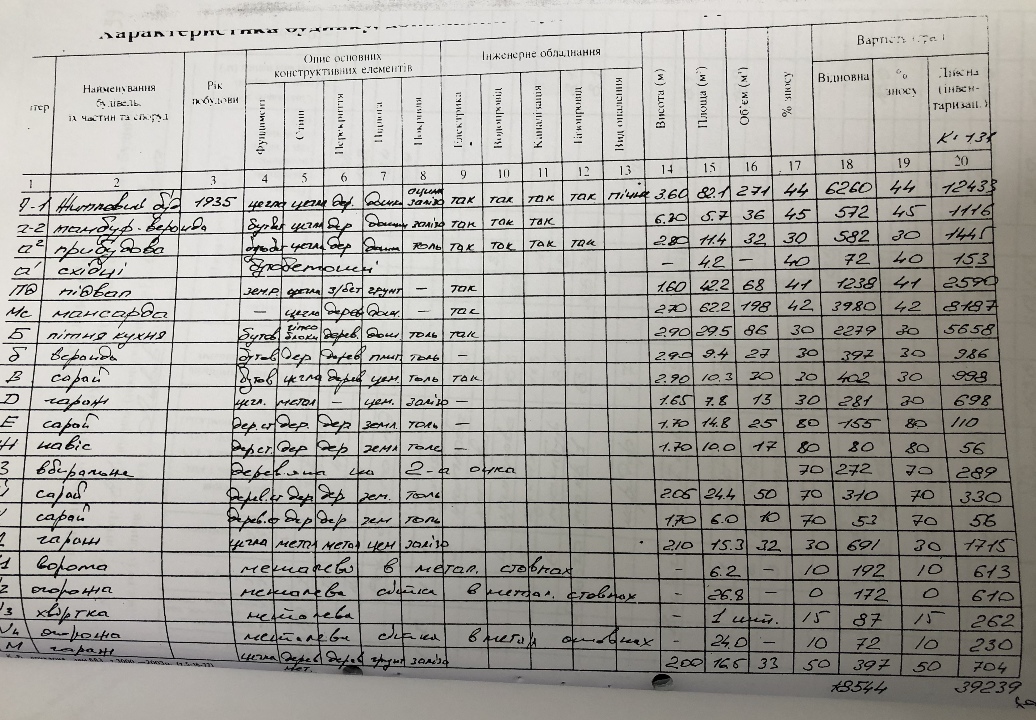 Характеристика будинку,
ітер
Найменування будівель, їх частин та споруд
Рік побудови
Опис основних конструктивних елементів
Інженерне обладнання
Фундамент Стіни Перекриття Підлога Покрівля Електрика Водопровід Каналізація Газопровід Вид опалення
Висота (м) Площа (м²) Об'єм (м³) % зносу
Вартість (грн.)
Відновна % зносу Дійсна (інвентаризац.)
1 2 3 4 5 6 7 8 9 10 11 12 13 14 15 16 17 18 19 20
Житловий б. 1935 цегла цегла дер. дощки оцинк залізо так так так так пічне 3.60 82.1 271 44 6260 44 12433
тамбур-веранда бутбет цегла дер дощки залізо так так так 6.30 5.7 36 45 572 45 1116
а² прибудова бутбет цегла дер дощки толь так так так так 2.80 11.4 32 30 582 30 1445
а' східці бутобетонні – 4.2 – 40 72 40 153
Пд підвал зем.р. цегла з/бет грунт – так 1.60 42.2 68 41 1238 41 2590
Мс мансарда – цегла дерев дощ. – так 2.70 62.2 198 42 3980 42 8187
Б літня кухня бутов гіпсо блоки дерев. дощ толь так 2.90 29.5 86 30 2279 30 5658
б веранда бутов дер дерев плит толь – 2.90 9.4 27 30 397 30 986
В сарай бутов цегла дерев цем. толь так 2.90 10.3 30 30 402 30 998
D гараж цегл. метал – цем. залізо – 1.65 7.8 13 30 281 30 698
Е сарай дер ст. дер. дер земл толь – 1.70 14.8 25 80 155 80 110
навіс дер ст. дер дер земл толь – 1.70 10.0 17 80 80 80 56
З вбиральня дерев.яна на 2-а очка 70 272 70 289
сарай дерев. ст дер дер зем. толь 2.05 24.4 50 70 310 70 330
сарай дерев. ст дер дер зем толь 1.70 6.0 10 70 53 70 56
гараж цегла метал метал цем залізо 2.10 15.3 32 30 691 30 1715
ворота металеві в метал. стовпах – 6.2 – 10 192 10 613
огорожа металева сітка в метал. стовпах – 26.8 – 0 172 0 610
хвіртка металева – 1 шт. – 15 87 15 262
огорожа металева сітка в метал стовпах – 24.0 – 10 72 10 230
М гараж цегла мет. дерев дерев грунт залізо 2.00 16.5 33 50 397 50 704
18544 39239